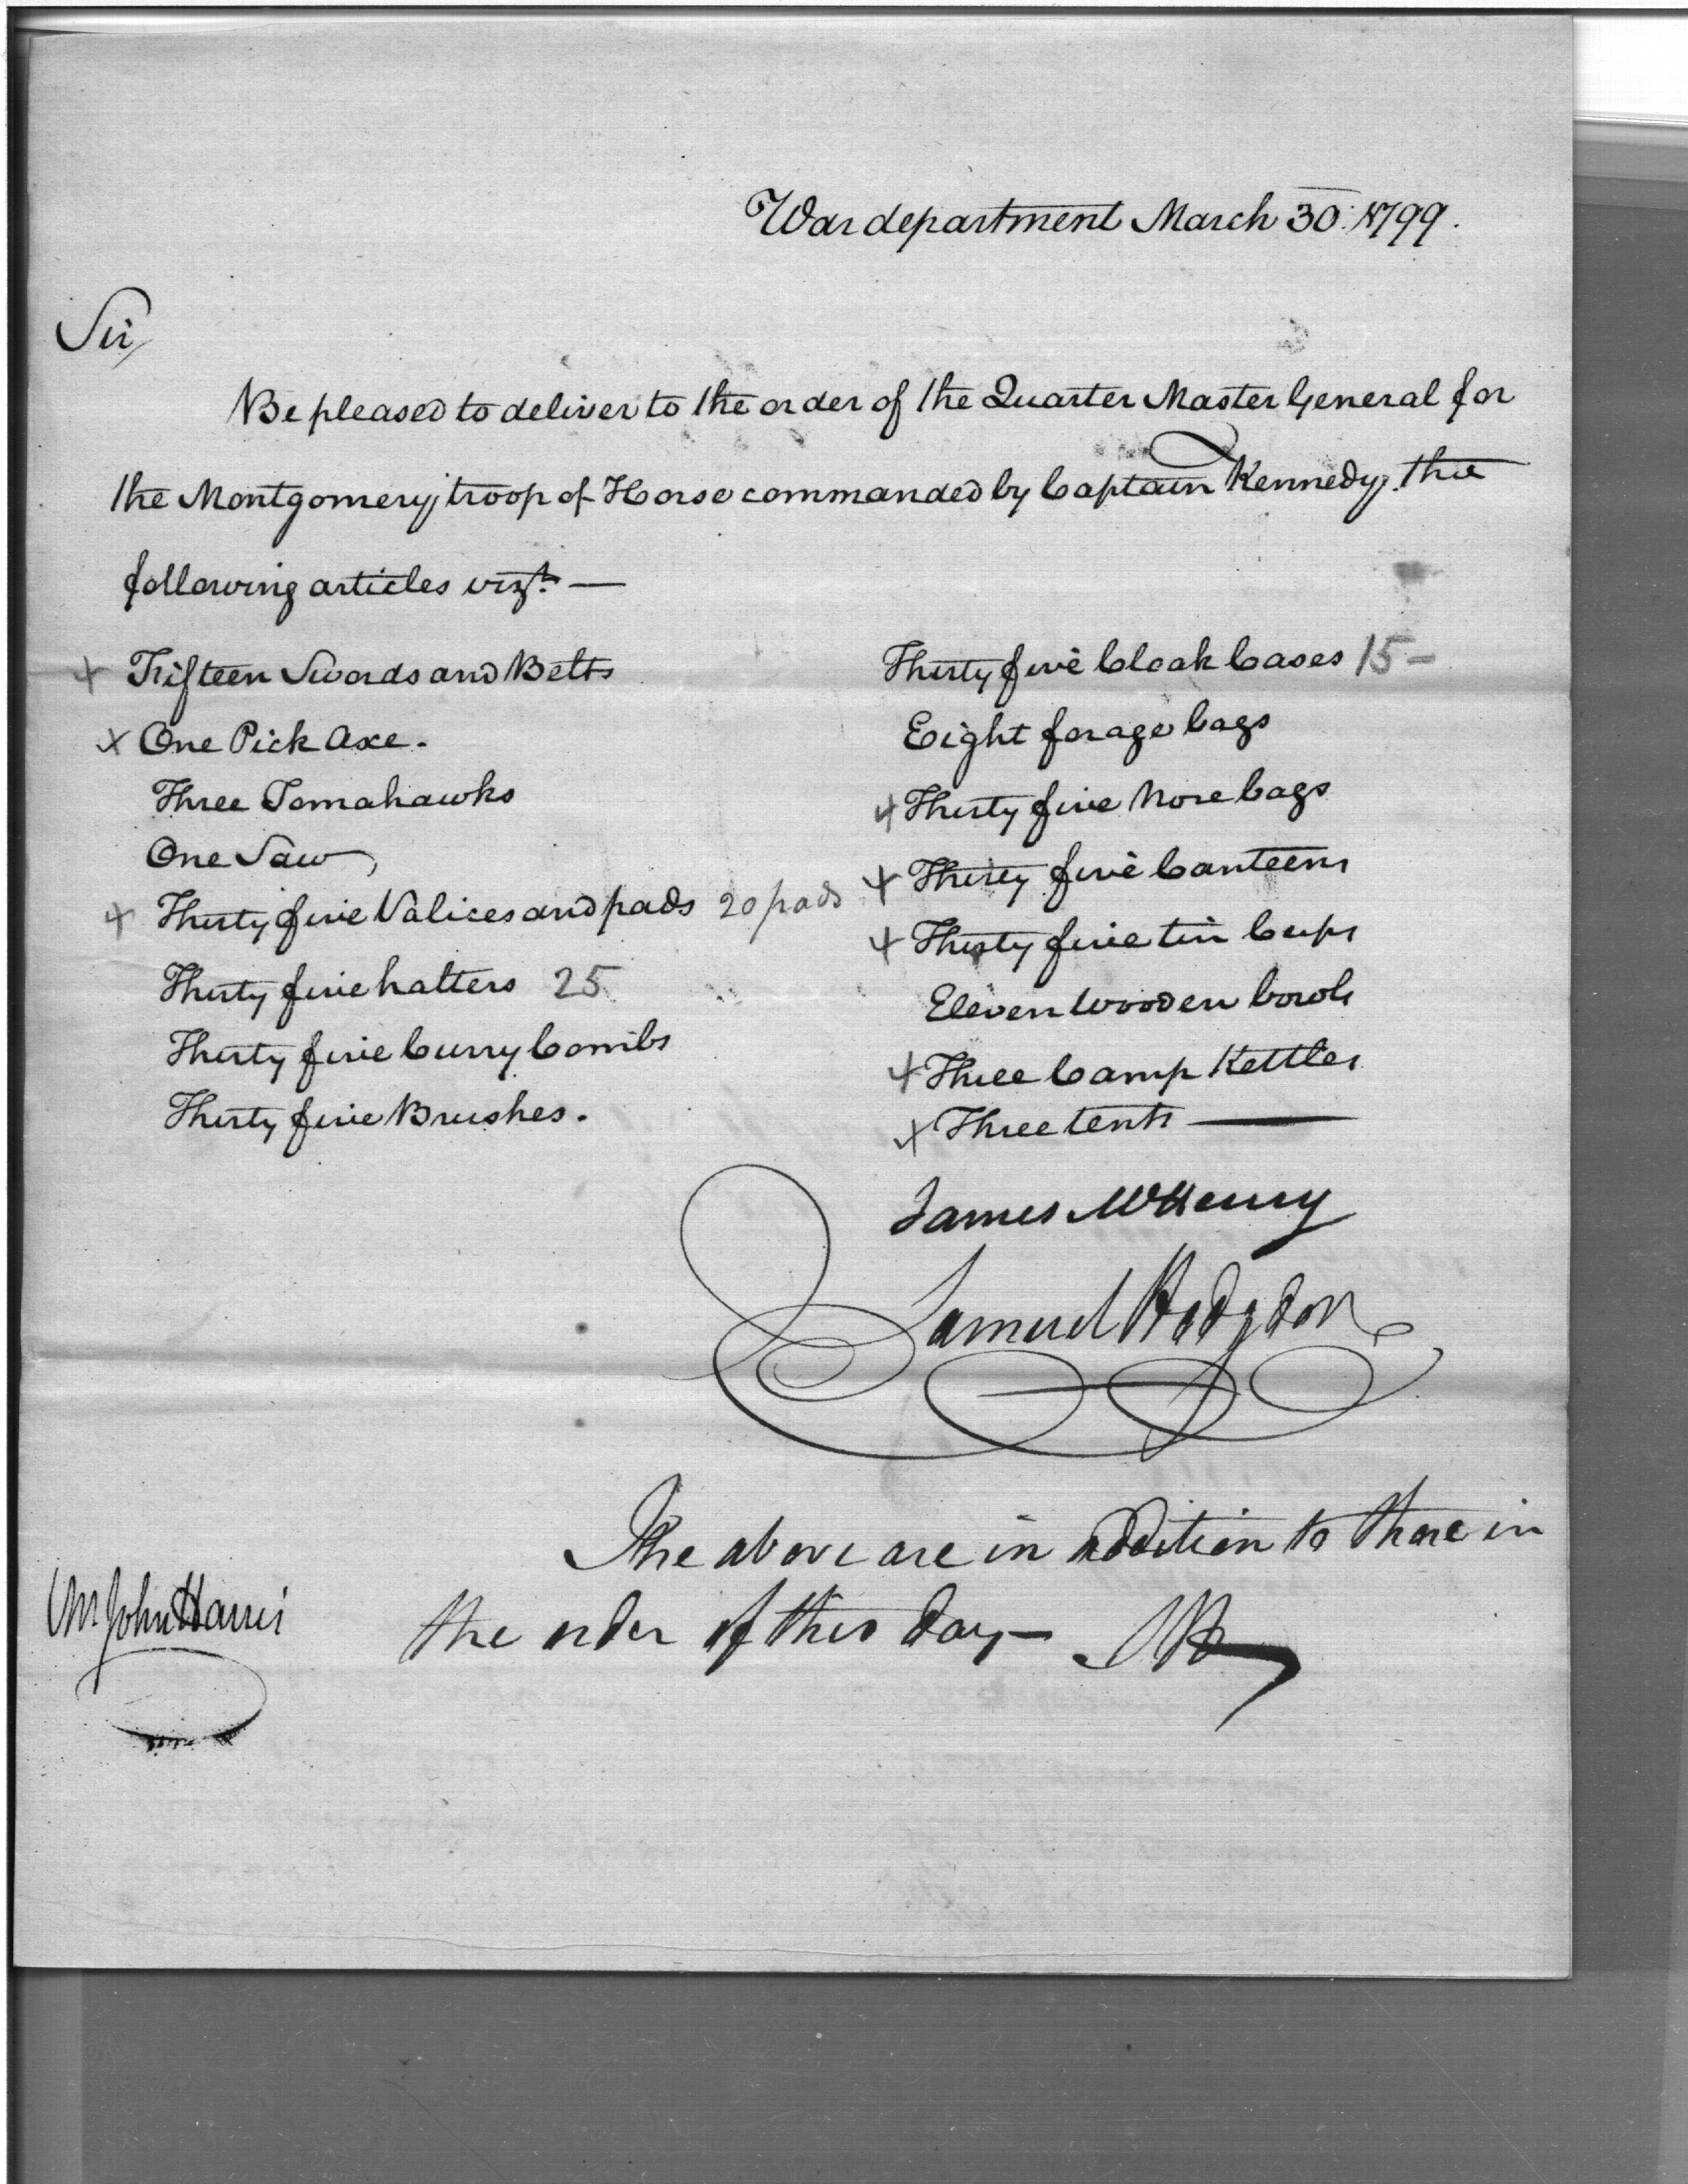 War department March 30th 1799.
Sir,
Be pleased to deliver to the order of the Quarter Master General for
the Montgomery troop of Horse commanded by Captain Kennedy, the
following articles vizt. —
x Fifteen Swords and Belts
x One Pick Axe.
Three Tomahawks
One Saw,
x Thirty five Valices and pads 20 pads
Thirty five halters 25
Thirty five Curry Combs
Thirty five Brushes.
Thirty five Cloak Cases 15 –
Eight forage bags
x Thirty five Nose bags
x Thirty five Canteens
x Thirty five tin Cups
Eleven Wooden bowls
x Three Camp Kettles
x Three tents —
James McHenry
Samuel Hodgdon
The above are in addition to those in
the order of this day —
Mr John Harris